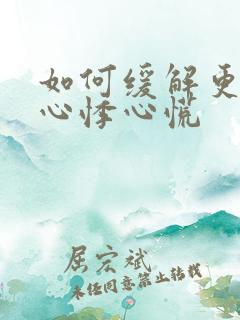 如何缓解更
心悸心慌
屈宏斌
未经同意禁止转载